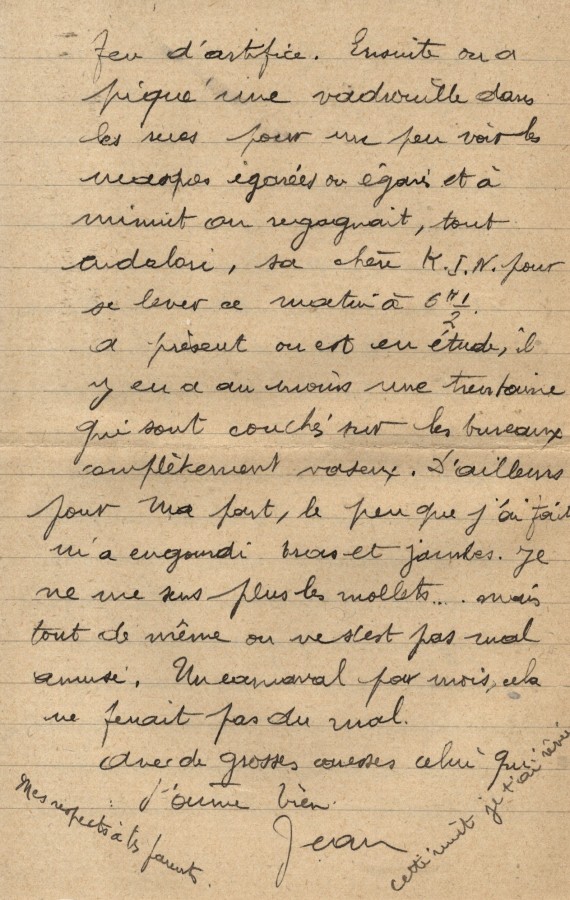 feu d'artifice. Ensuite on a
piqué une vadrouille dans
les rues pour un peu voir les
masques égarées ou égarés et à
minuit on regagnait, tout
endolori, sa chère K.I.N. pour
se lever ce matin à 6 H 1/2.
A présent on est en étude, il
y en a au moins une trentaine
qui sont couchés sur les bureaux
complètement vaseux. D'ailleurs
pour ma part, le peu que j'ai fait
m'a engourdi bras et jambes. Je
ne me sens plus les mollets... mais
tout de même on ne s'est pas mal
amusé. Un carnaval par mois, cela
ne ferait pas du mal.
Avec de grosses caresses celui qui
t'aime bien.
Jean
Mes respects à tes parents.
cette nuit je t'ai rêvé